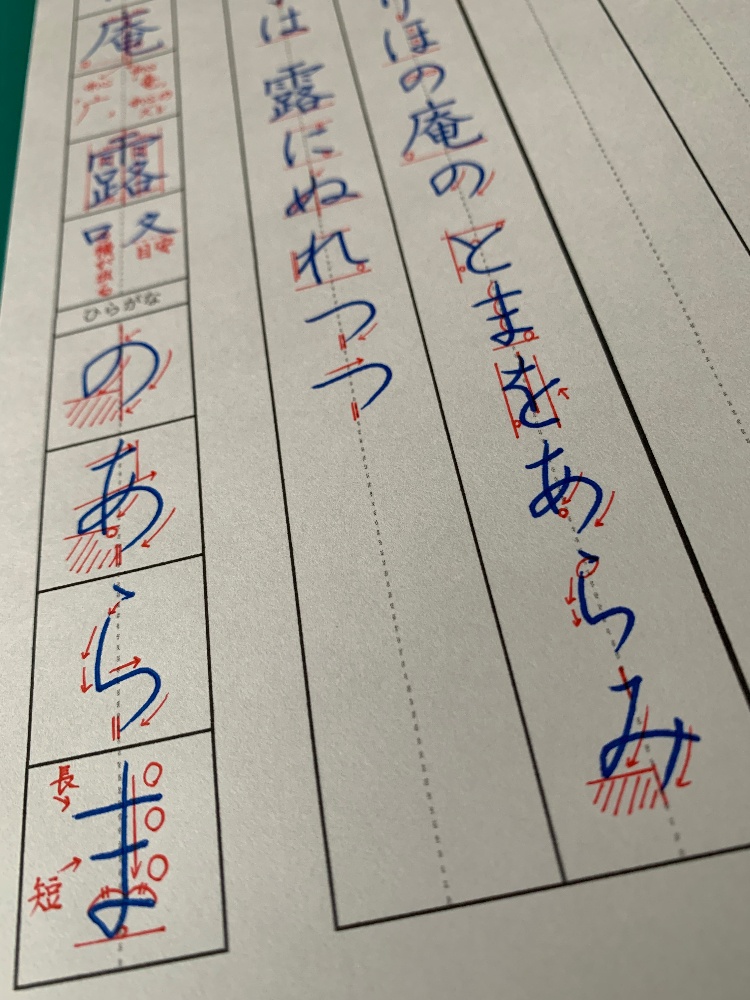 ほの庵のとまをあらみ
は露にぬれつつ
庵
露
口 攵
ひらがな
の
あ
ら
ま
長
短